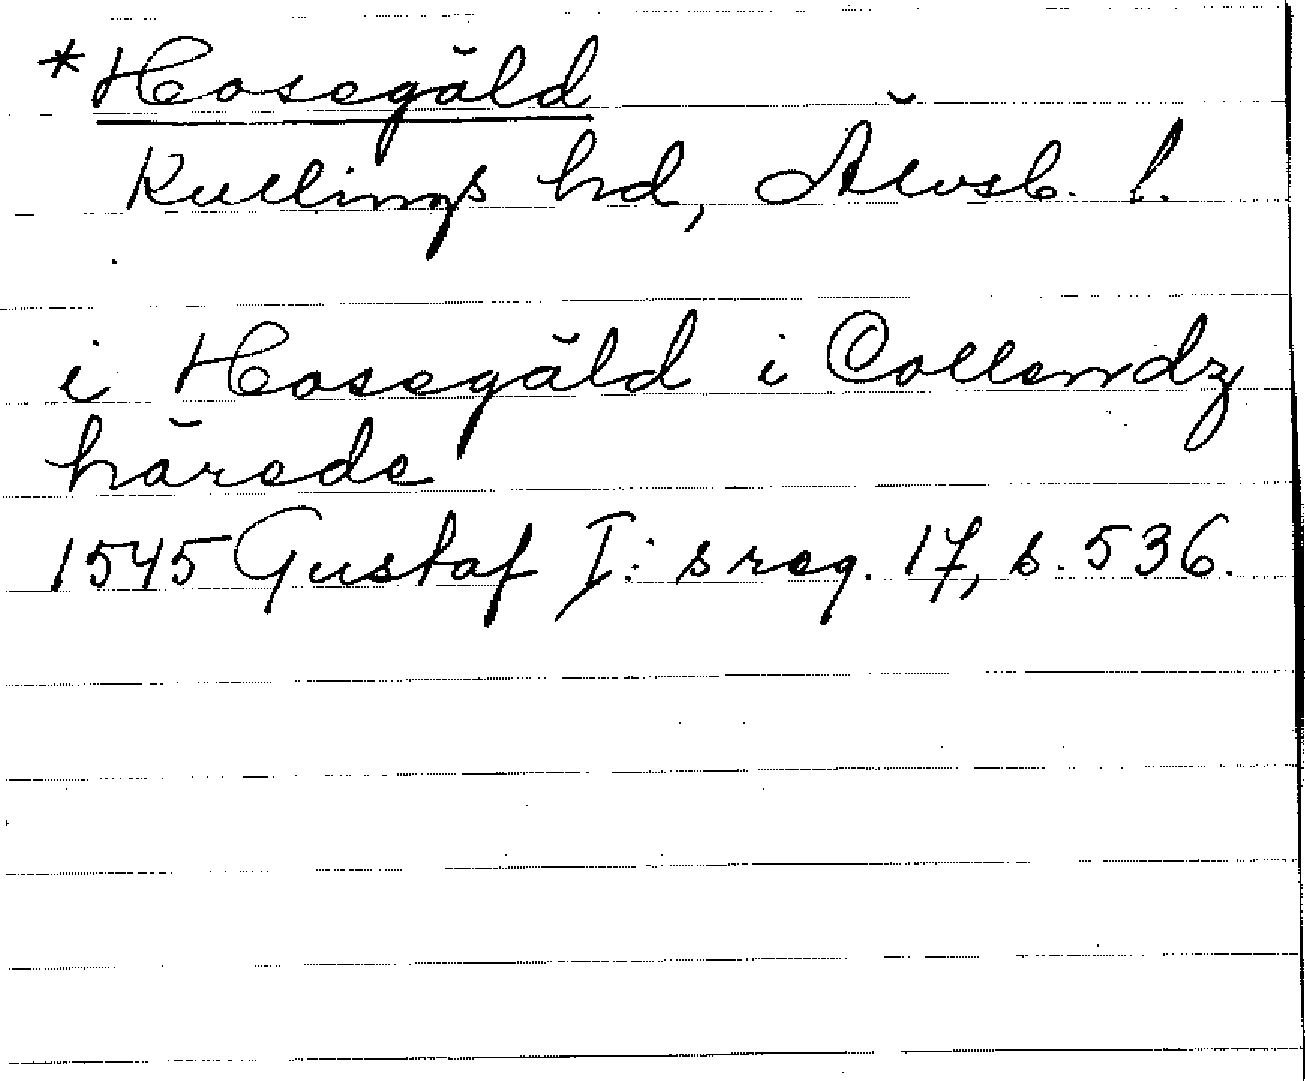 *Hosegäld
Kullings hd, Älvsb. l.
i Hosegäld i Collendz
härede
1545 Gustaf I: s reg. 17, s. 536.